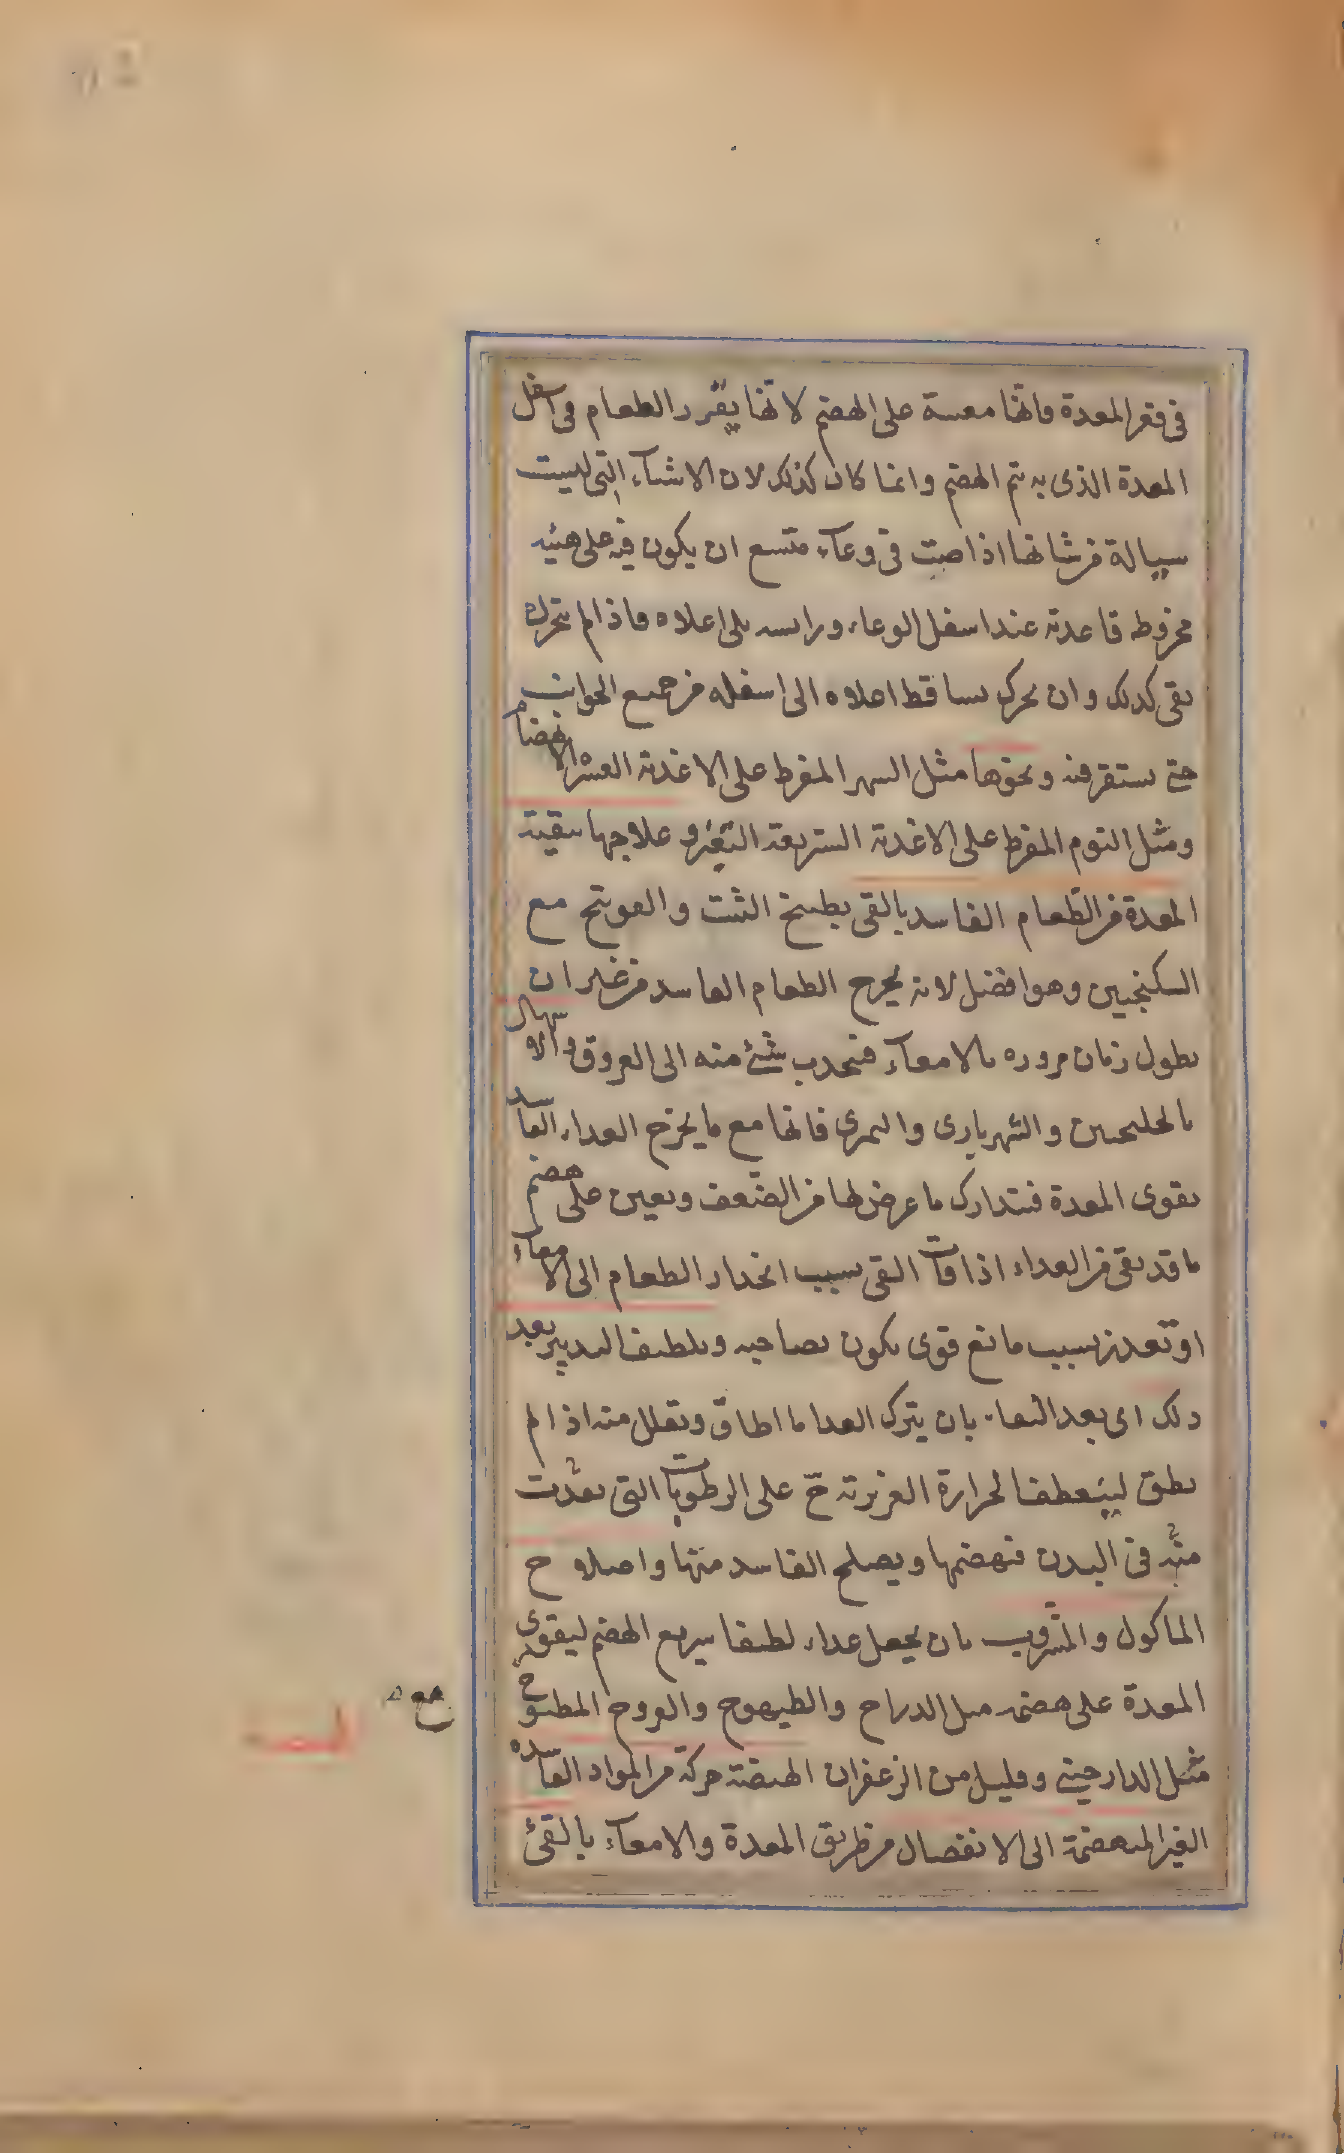 في قعر المعدة فانها معينة على الهضم لانها يقرر الطعام في اسفل
المعدة الذى به يتم الهضم وانما كان كذلك لان الاشياء التى ليست
سيالة من شانها اذا صبت في وعاء متسع ان يكون فيه على هيئة
مخروط قاعدته عند اسفل الوعاء وراسه يلى اعلاه فاذا لم يتحرك
بقى كذلك وان تحرك تساقط اعلاه الى اسفله من جميع الجوانب
حتى يستقر فيه ونحوها مثل السهر المفرط على الاغذية العسر الانهضام
ومثل النوم المفرط على الاغذية السريعة التغير وعلاجها تنقية
المعدة من الطعام الفاسد بالقى بطبيخ الشبت والفوتنج مع
السكنجبين وهو افضل لانه يخرج الطعام الفاسد من غير ان
يطول زمان مروره بالامعاء فينجذب شئ منه الى العروق والاسهال
بالجلنجبين والشهرياري والتمري فانها مع ما يخرج الغذاء الفاسد
يقوى المعدة فيتدارك ما عرض لها من الضعف ويعين على هضم
ما قد بقى من الغذاء اذا فات القى بسبب انحدار الطعام الى الامعاء
او تعذر بسبب مانع قوى يكون بصاحبه وتلطيف التدبير بعد
ذلك اى بعد النقاء بان يترك الغذا ما اطاق ويقلل منه اذا لم
يطق لينعطف الحرارة الغريزية ح على الرطوبات التى
منه في البدن فيهضمها ويصلح الفاسد منها واصلاح
الماكول والمشروب بان يجعل غذاء لطيفا سريع الهضم ليقوى
المعدة على هضمه مثل الدراج والطيهوج والفروج المطبوخ
مثل الدارجينى وقليل من الزعفران الهيضة حركة من المواد الفاسدة
الغير المنهضمة الى الانفصال من طريق المعدة والامعاء بالقئ
مع